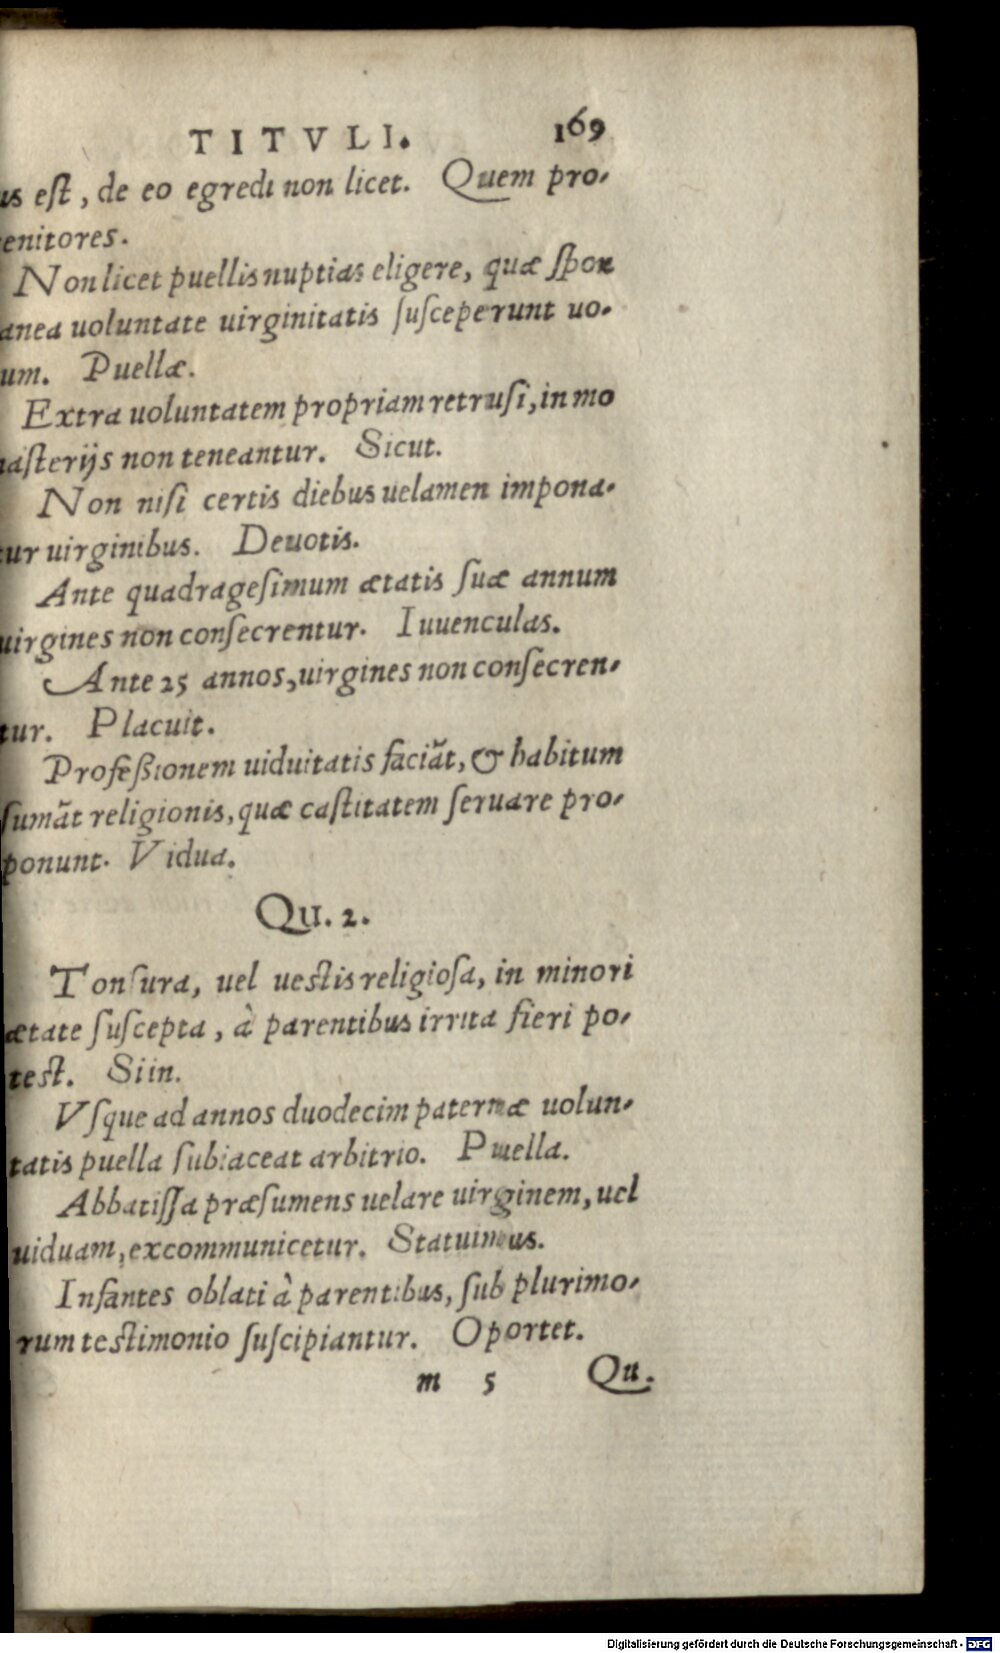 TITVLI. 169
us eſt, de eo egredi non licet. Quem pro-
enitores.
Non licet puellis nuptias eligere, quæ ſpon
anea uoluntate uirginitatis ſuſceperunt uo-
um. Puellæ.
Extra uoluntatem propriam retruſi, in mo
naſterijs non teneantur. Sicut.
Non niſi certis diebus uelamen impona-
tur uirginibus. Deuotis.
Ante quadrageſimum ætatis ſuæ annum
uirgines non conſecrentur. Iuuenculas.
Ante 25 annos, uirgines non conſecren-
tur. Placuit.
Profeſſionem uiduitatis faciãt, & habitum
ſumãt religionis, quæ caſtitatem ſeruare pro-
ponunt. Vidua.
Qu. 2.
Tonſura, uel ueſtis religioſa, in minori
ætate ſuſcepta, à parentibus irrita fieri po-
teſt. Si in.
Vſque ad annos duodecim paternæ uolun-
tatis puella ſubiaceat arbitrio. Puella.
Abbatiſſa præſumens uelare uirginem, uel
uiduam, excommunicetur. Statuimus.
Infantes oblati à parentibus, ſub plurimo-
rum teſtimonio ſuſcipiantur. Oportet.
m 5 Qu.
Digitalisierung gefördert durch die Deutsche Forschungsgemeinschaft - DFG